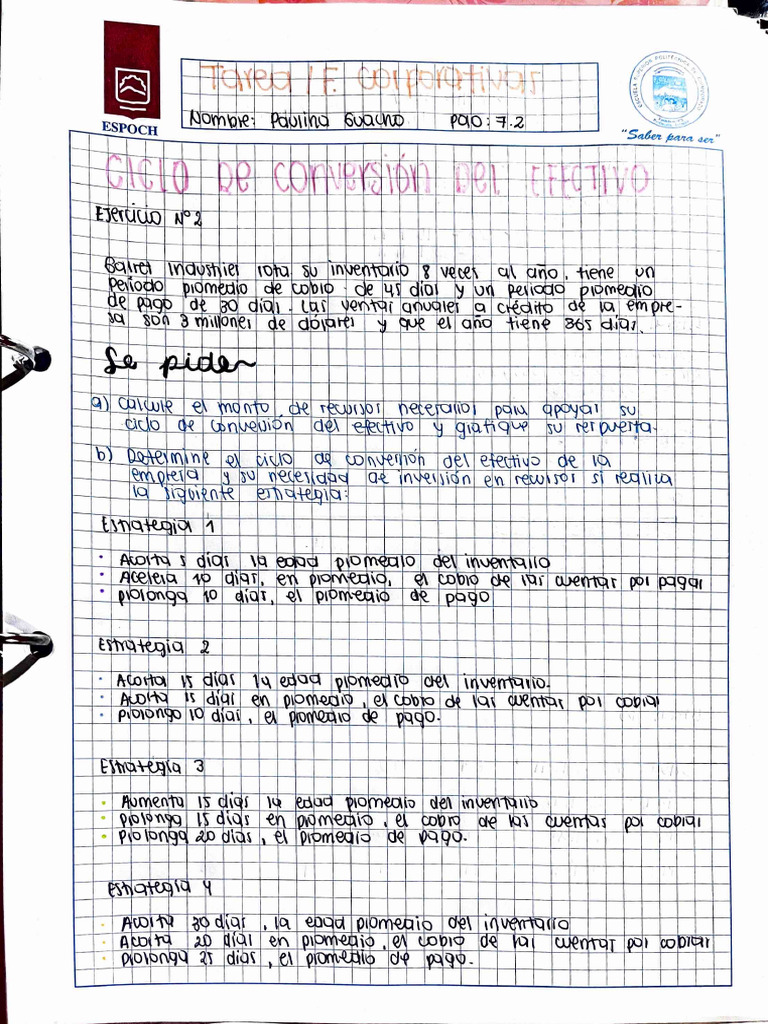 Tarea / F. corporativas
Nombre: Paulina Guacho PAO: 7.2
ESPOCH
ESCUELA SUPERIOR POLITÉCNICA DE CHIMBORAZO
"Saber para ser"
CICLO DE CONVERSIÓN DEL EFECTIVO
Ejercicio N°2
Industries rota su inventario 8 veces al año, tiene un
periodo promedio de cobro de 45 días y un periodo promedio
de pago de 30 días. Las ventas anuales a crédito de la empre-
sa son 3 millones de dólares y que el año tiene 365 días.
Se piden
a) Calcule el monto de recursos necesarios para apoyar su
ciclo de conversión del efectivo y grafique su respuesta.
b) Determine el ciclo de conversión del efectivo de la
empresa y su necesidad de inversión en recursos si realiza
la siguiente estrategia:
Estrategia 1
• Acorta 5 días la edad promedio del inventario
• Acelera 10 días, en promedio, el cobro de las cuentas por pagar
• prolonga 10 días, el promedio de pago
Estrategia 2
• Acorta 15 días la edad promedio del inventario.
• Acorta 15 días en promedio, el cobro de las cuentas por cobrar
• prolongo 10 días, el promedio de pago.
Estrategia 3
• Aumenta 15 días la edad promedio del inventario
• prolonga 15 días en promedio, el cobro de las cuentas por cobrar
• prolonga 20 días, el promedio de pago.
Estrategia 4
• Acorta 30 días, la edad promedio del inventario
• Acorta 20 días en promedio, el cobro de las cuentas por cobrar
• prolonga 25 días, el promedio de pago.